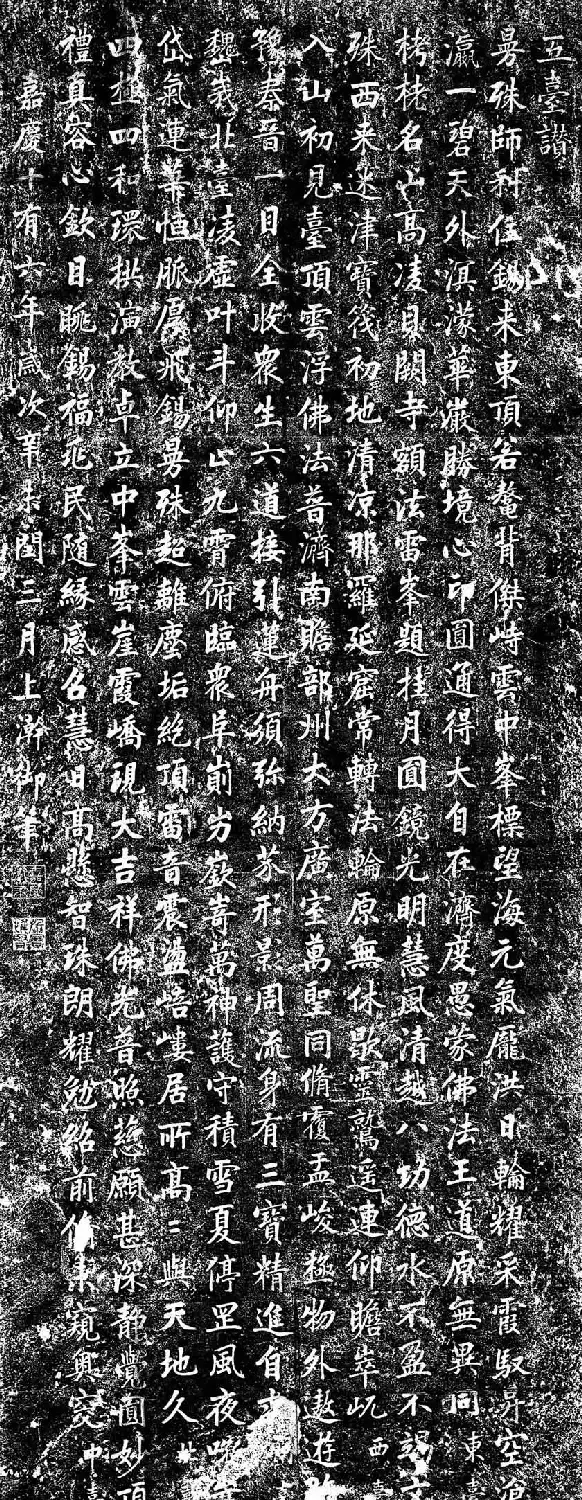 五臺讃
曼殊師利住錫来東頂若鼇背傑峙雲中峯標望海元氣龐洪日輪耀采霞馭昇空
瀛一碧天外溟濛華嚴勝境心印圓通得大自在濟度愚蒙佛法王道原無異同東臺
栲栳名山高凌貝闕寺額法雷峯題挂月圓鏡光明慧風清越八功德水不盈不竭
殊西来迷津寶筏初地清涼那羅延窟常轉法輪原無休歇靈鷲遥連仰瞻崒屼西臺
入山初見臺頂雲浮佛法普濟南贍部州大方廣室萬聖同脩覆盂峻極物外遨遊
豫秦晉一目全收衆生六道接引蓮舟須弥納芥形景周流身有三寶精進自
北臺凌虚叶斗仰止九霄俯臨衆阜崱屴嶔嵜萬神護守積雪夏停罡風夜
岱氣連華恒脈厚飛錫曼殊超離塵垢絶頂雷音震盪峿嶁居所高二與天地久北
四埵四和環拱演教卓立中峯雲崖霞嶠現大吉祥佛光普照慈願甚深静覺圓妙頂
禮真容心欽日眺錫福兆民随緣感召慧日高懸智珠朗耀勉紹前窺奥窔中臺
嘉慶十有六年歳次辛未閏三月上澣御筆